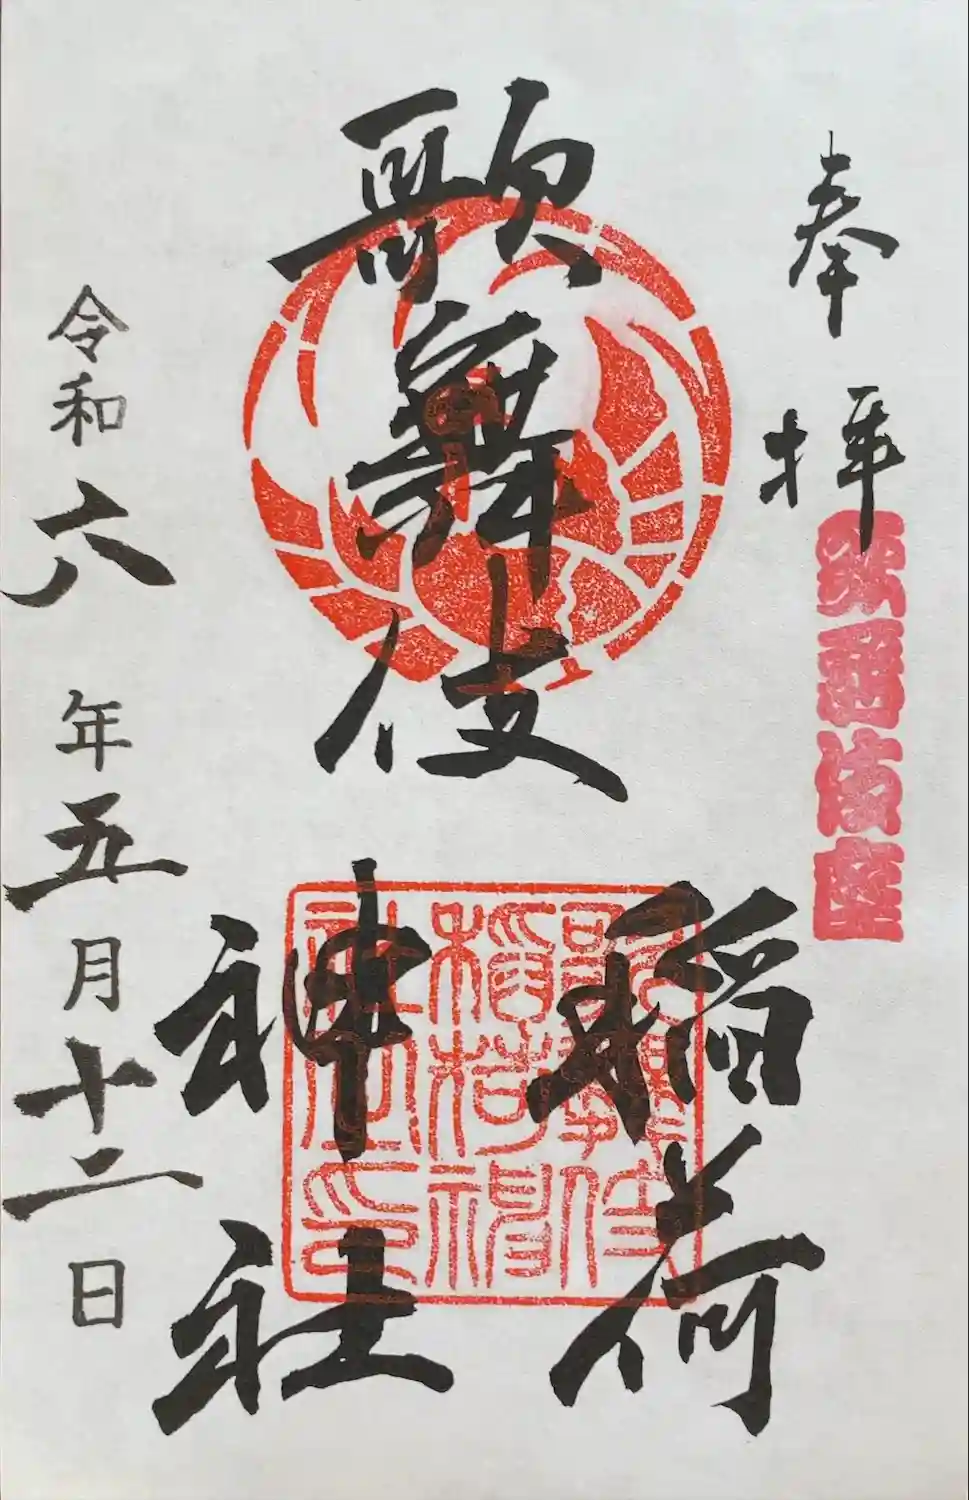 奉拝
歌舞伎座
歌舞伎
稲荷
神社
歌舞伎
稲荷神
社之印
令和六年五月十二日